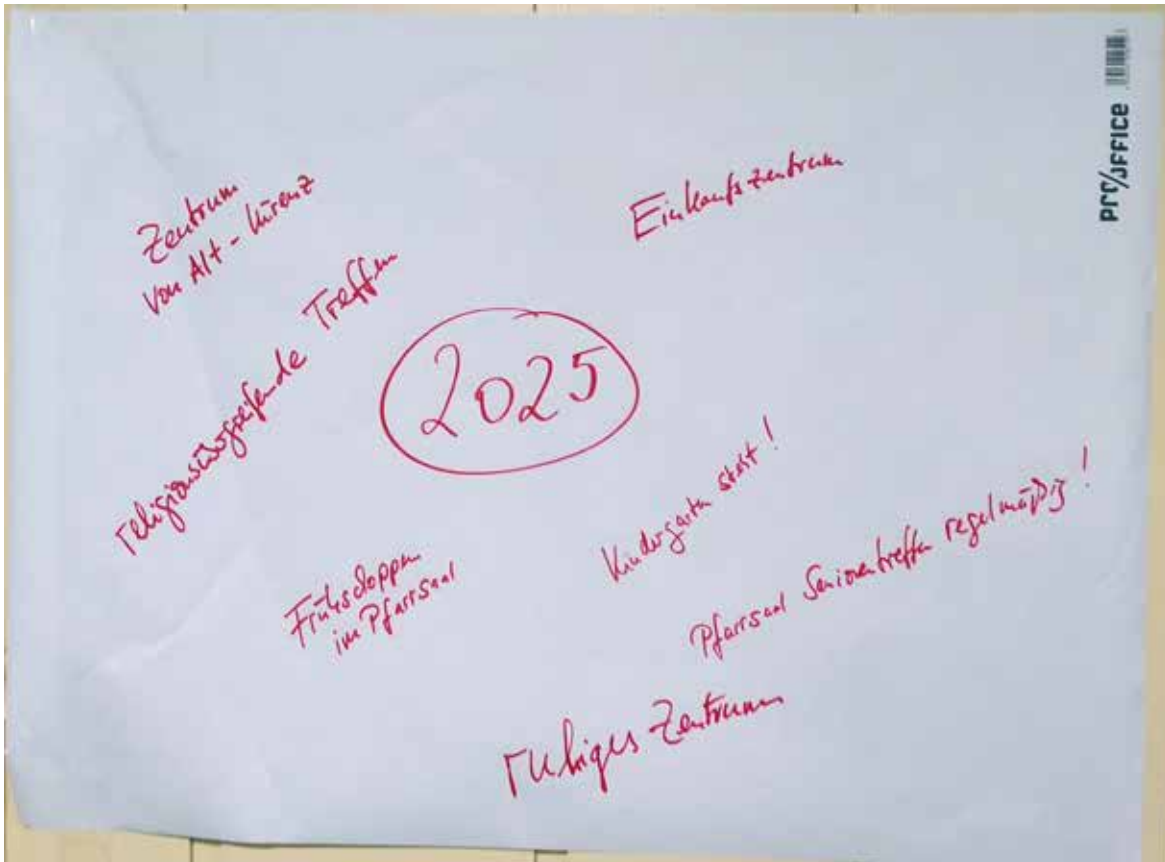 Zentrum
von Alt-Kürenz
Einkaufszentrum
religionsübergreifende Treffen
2025
Kindergarten steht!
Frühschoppen
im Pfarrsaal
Pfarrsaal Seniorentreffen regelmäßig!
ruhiges Zentrum